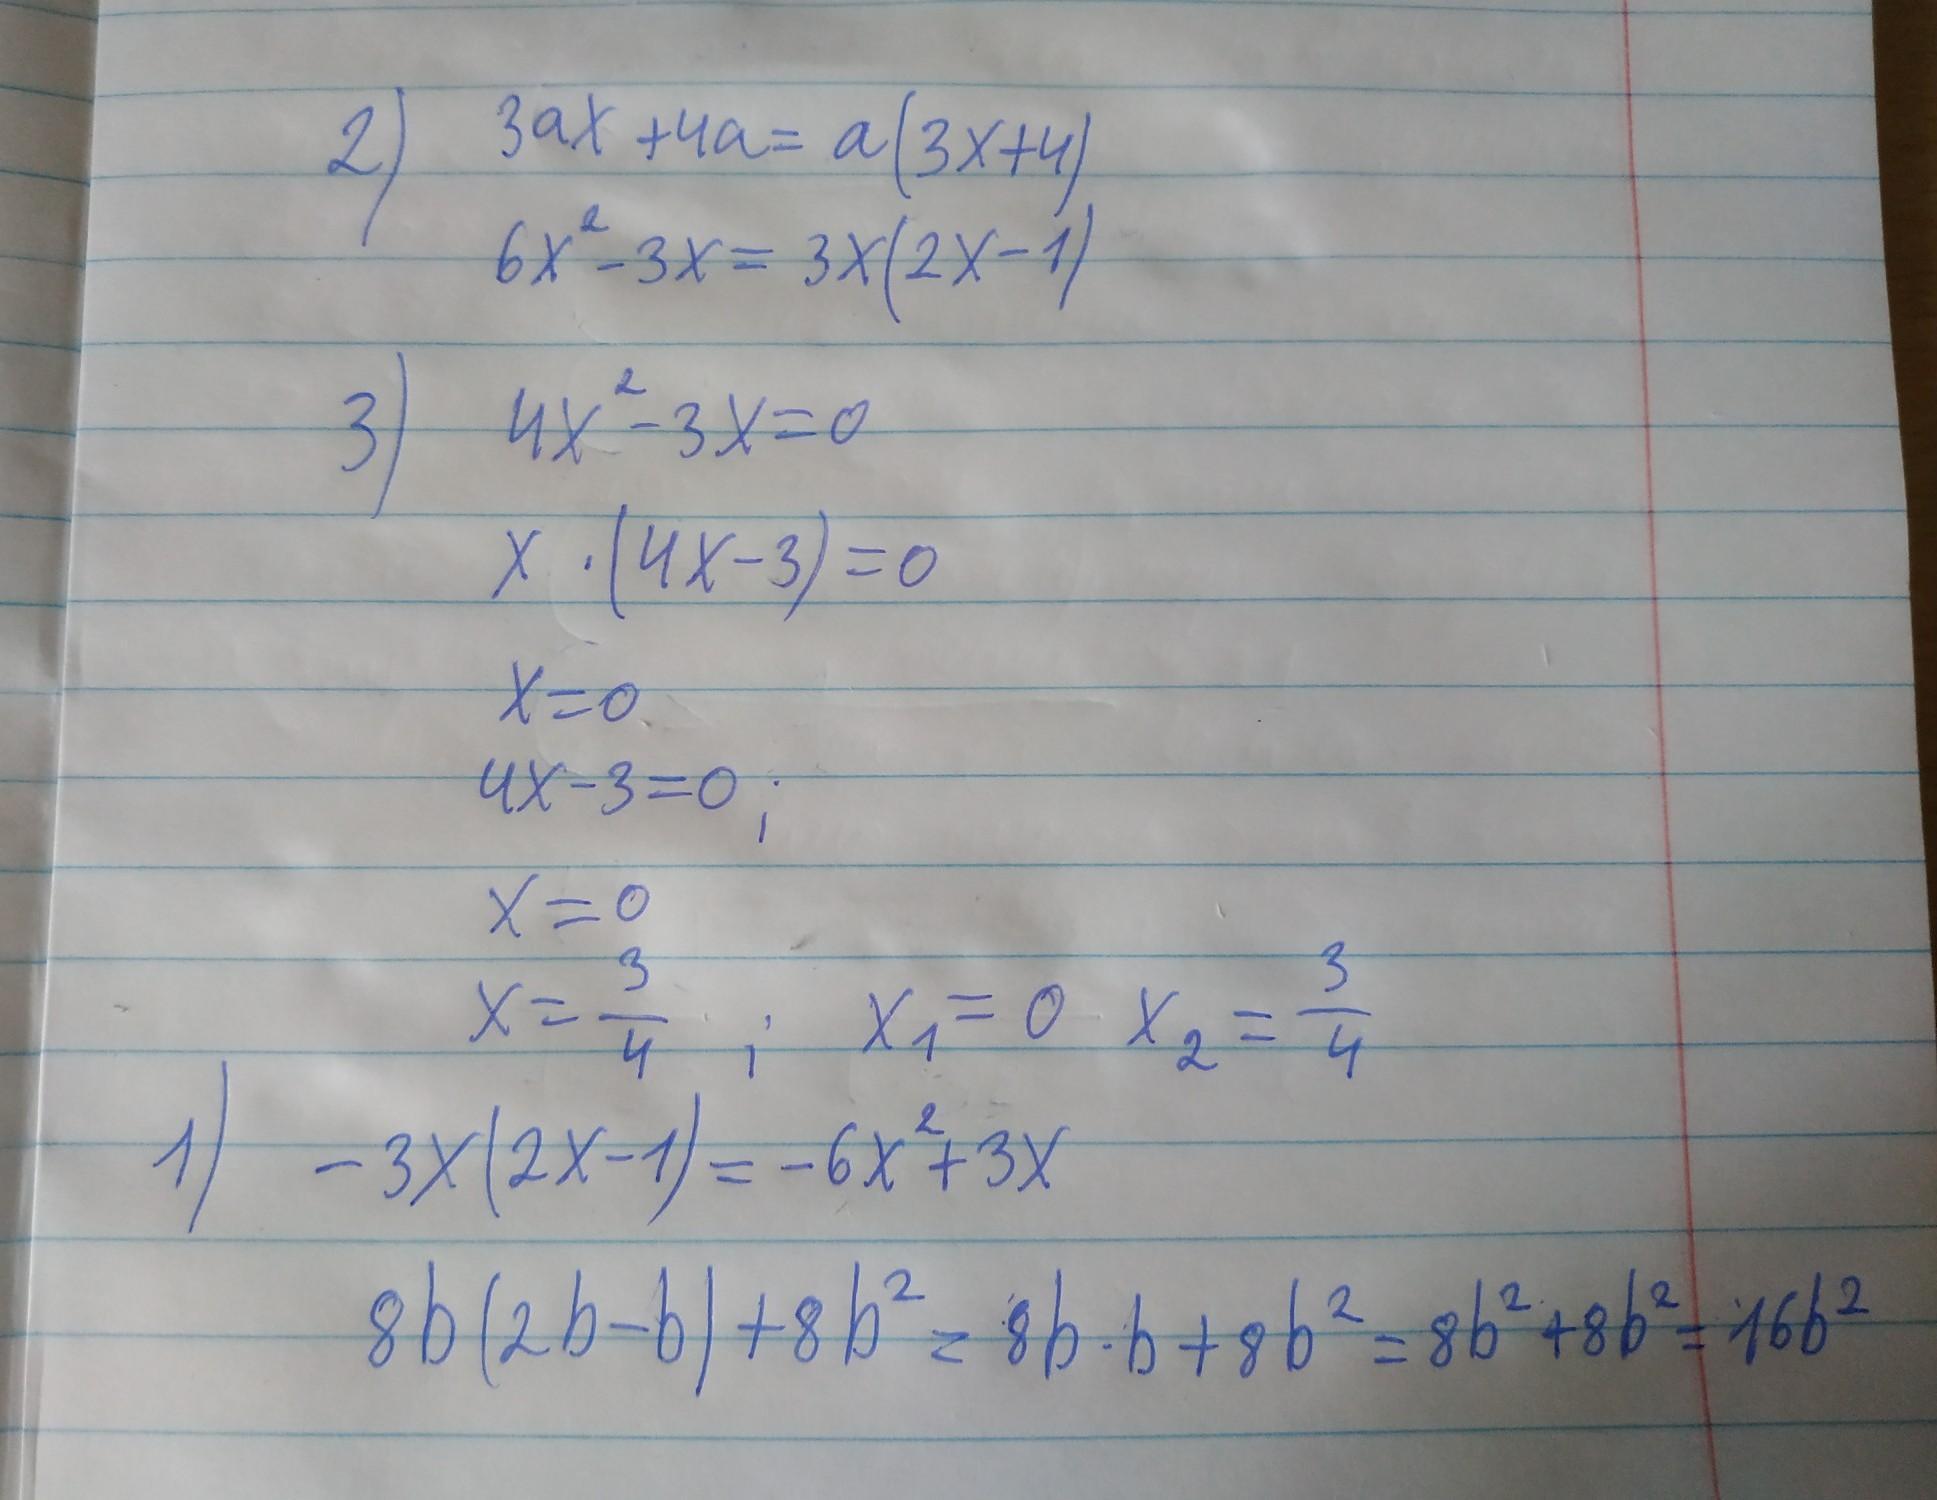 2) 3ax+4a=a(3x+4)
6x²-3x=3x(2x-1)
3) 4x²-3x=0
x·(4x-3)=0
x=0
4x-3=0;
x=0
x=3/4; x₁=0 x₂=3/4
1) -3x(2x-1)=-6x²+3x
8b(2b-b)+8b²=8b·b+8b²=8b²+8b²=16b²